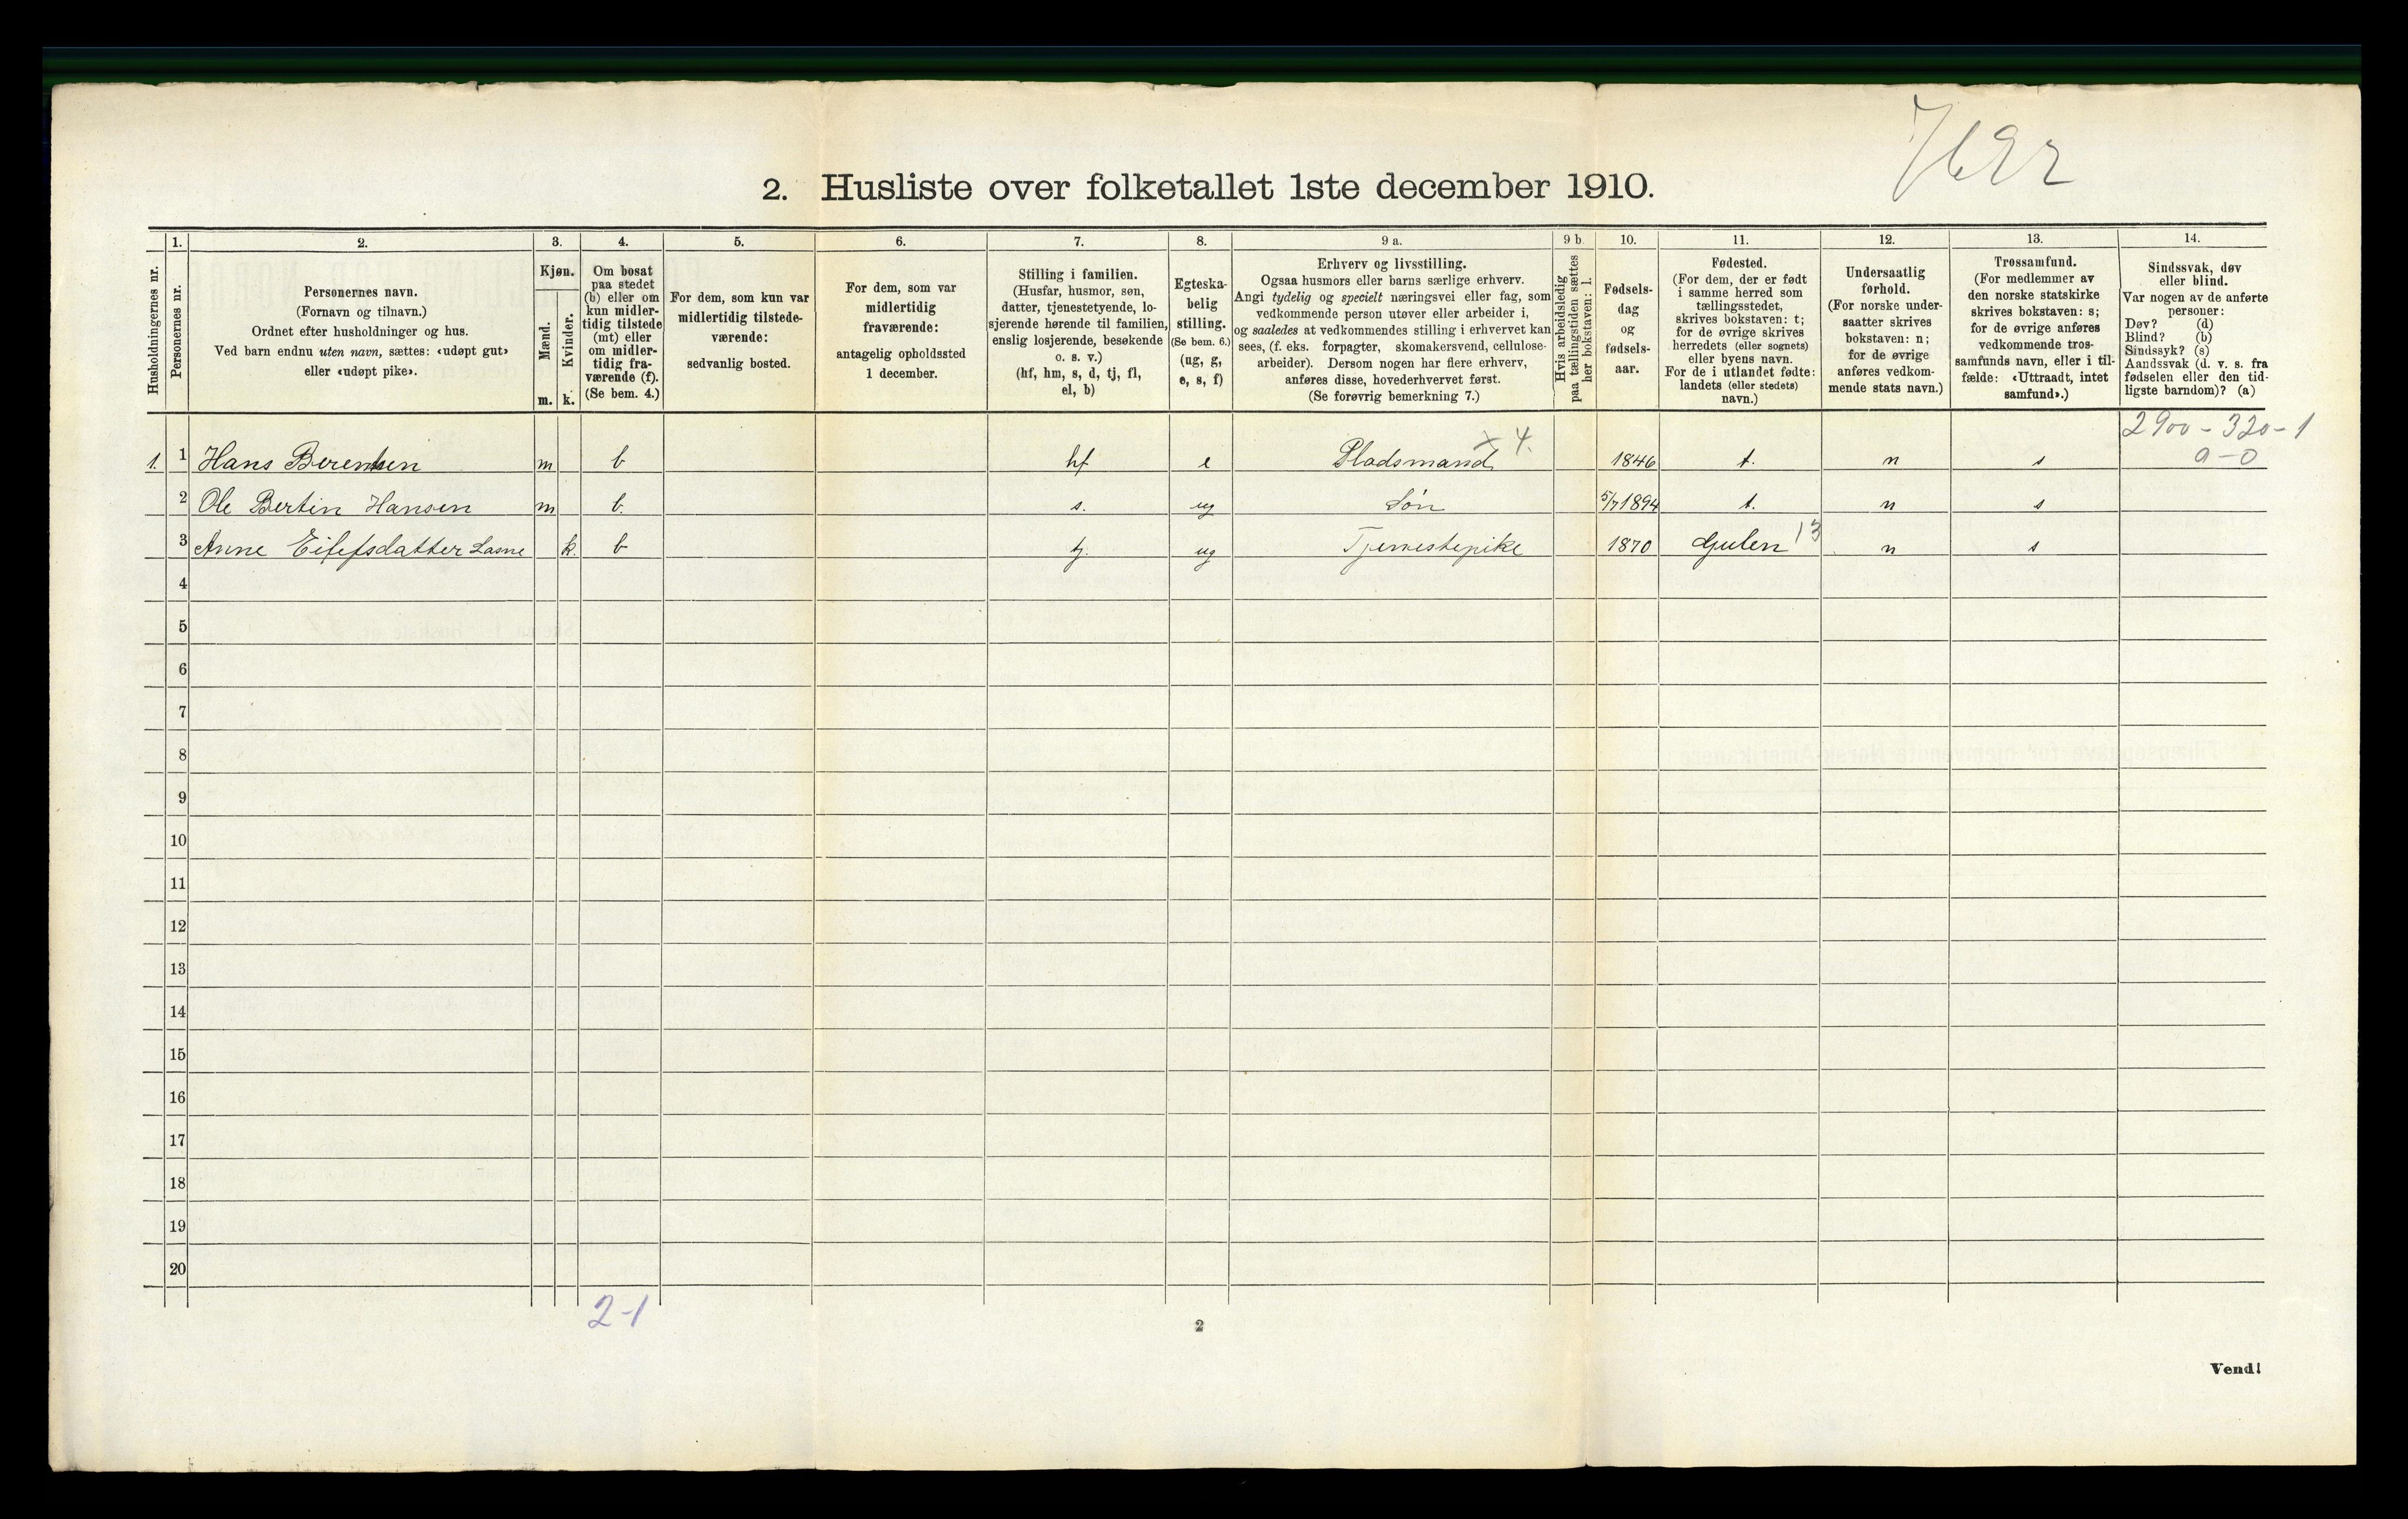 2. Husliste over folketallet 1ste december 1910.
1. 2. 3. 4. 5. 6. 7. 8. 9 a. 9 b. 10. 11. 12. 13. 14.
Husholdningernes nr.
Personernes nr.
Personernes navn.
(Fornavn og tilnavn.)
Ordnet efter husholdninger og hus.
Ved barn endnu uten navn, sættes: «udøpt gut»
eller «udøpt pike».
Kjøn.
Mænd.
Kvinder.
m. k.
Om bosat
paa stedet
(b) eller om
kun midler-
tidig tilstede
(mt) eller
om midler-
tidig fra-
værende (f).
(Se bem. 4.)
For dem, som kun var
midlertidig tilstede-
værende:
sedvanlig bosted.
For dem, som var
midlertidig
fraværende:
antagelig opholdssted
1 december.
Stilling i familien.
(Husfar, husmor, søn,
datter, tjenestetyende, lo-
sjerende hørende til familien,
enslig losjerende, besøkende
o. s. v.)
(hf, hm, s, d, tj, fl,
el, b)
Egteska-
belig
stilling.
(Se bem. 6.)
(ug, g,
e, s, f)
Erhverv og livsstilling.
Ogsaa husmors eller barns særlige erhverv.
Angi tydelig og specielt næringsvei eller fag, som
vedkommende person utøver eller arbeider i,
og saaledes at vedkommendes stilling i erhvervet kan
sees, (f. eks. forpagter, skomakersvend, cellulose-
arbeider). Dersom nogen har flere erhverv,
anføres disse, hovederhvervet først.
(Se forøvrig bemerkning 7.)
Hvis arbeidsledig
paa tællingstiden sættes
her bokstaven: l.
Fødsels-
dag
og
fødsels-
aar.
Fødested.
(For dem, der er født
i samme herred som
tællingsstedet,
skrives bokstaven: t;
for de øvrige skrives
herredets (eller sognets)
eller byens navn.
For de i utlandet fødte:
landets (eller stedets)
navn.)
Undersaatlig
forhold.
(For norske under-
saatter skrives
bokstaven: n;
for de øvrige
anføres vedkom-
mende stats navn.)
Trossamfund.
(For medlemmer av
den norske statskirke
skrives bokstaven: s;
for de øvrige anføres
vedkommende tros-
samfunds navn, eller i til-
fælde: «Uttraadt, intet
samfund».)
Sindssvak, døv
eller blind.
Var nogen av de anførte
personer:
Døv? (d)
Blind? (b)
Sindssyk? (s)
Aandssvak (d. v. s. fra
fødselen eller den tid-
ligste barndom)? (a)
2900-320-1
0-0
1. 1 Hans Berentsen m b hf e Pladsmand x 4. 1846 t. n s
2 Ole Bertin Hansen m b. s. ug Søn 5/7 1894 t. n s
3 Anne Eilefsdatter k. b tj. ug Tjenestepike 1870 Gulen 13 n s
4
5
6
7
8
9
10
11
12
13
14
15
16
17
18
19
20
2-1
2
Vend!